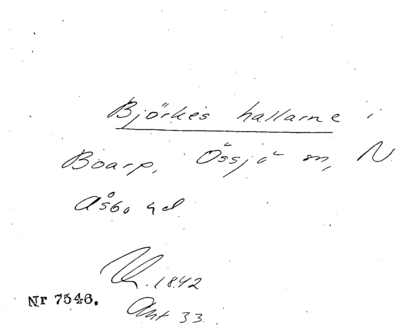 Björkes hallarne i
Boarp, Össjö sn, N.
Åsbo hd
1842
Nr 7546.
Akt 33